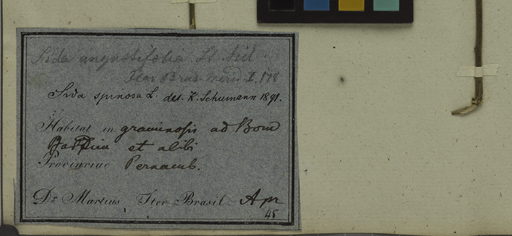 Sida angustifolia St. Hil
Sida spinosa L. det. K. Schumann 1891.
Habitat in graminosis ad Bom
et alibi
Provinciae Pernamb.
Dr Martius, Iter Brasil. Apr
45